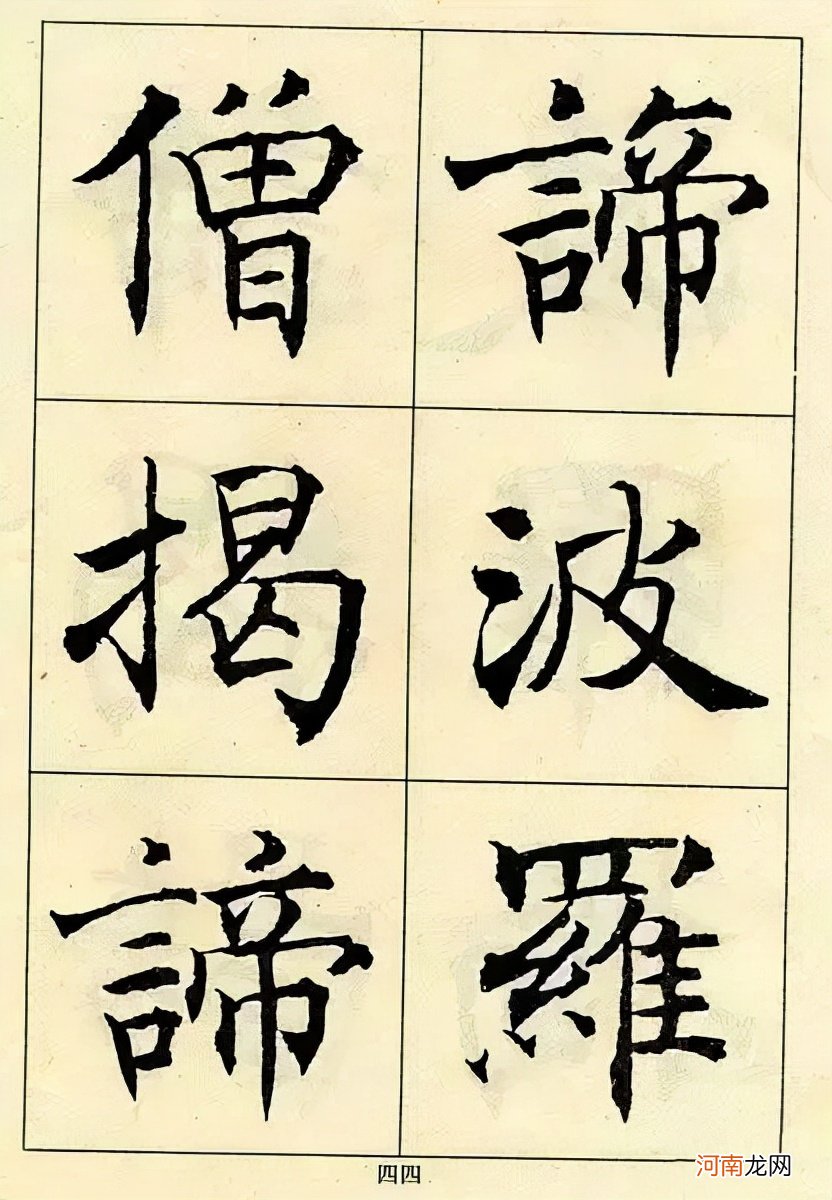 諦波羅
僧揭諦
四四
河南龙网